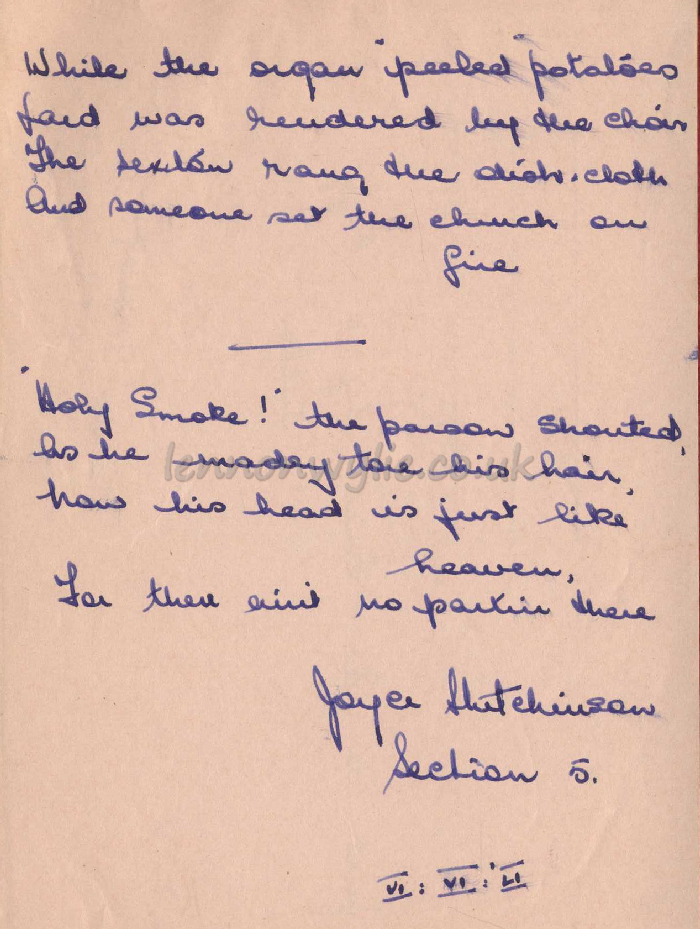 While the organ "peeled" potatoes
Lard was rendered by the choir
The sexton rang the dish-cloth
And someone set the church on
fire
"Holy Smoke!" the parson shouted,
As he madly tore his hair,
Now his head is just like
heaven,
For there ain't no partin there
Joyce Hutchinson
Section 5.
VI : VI : LI
lennonwylie.co.uk